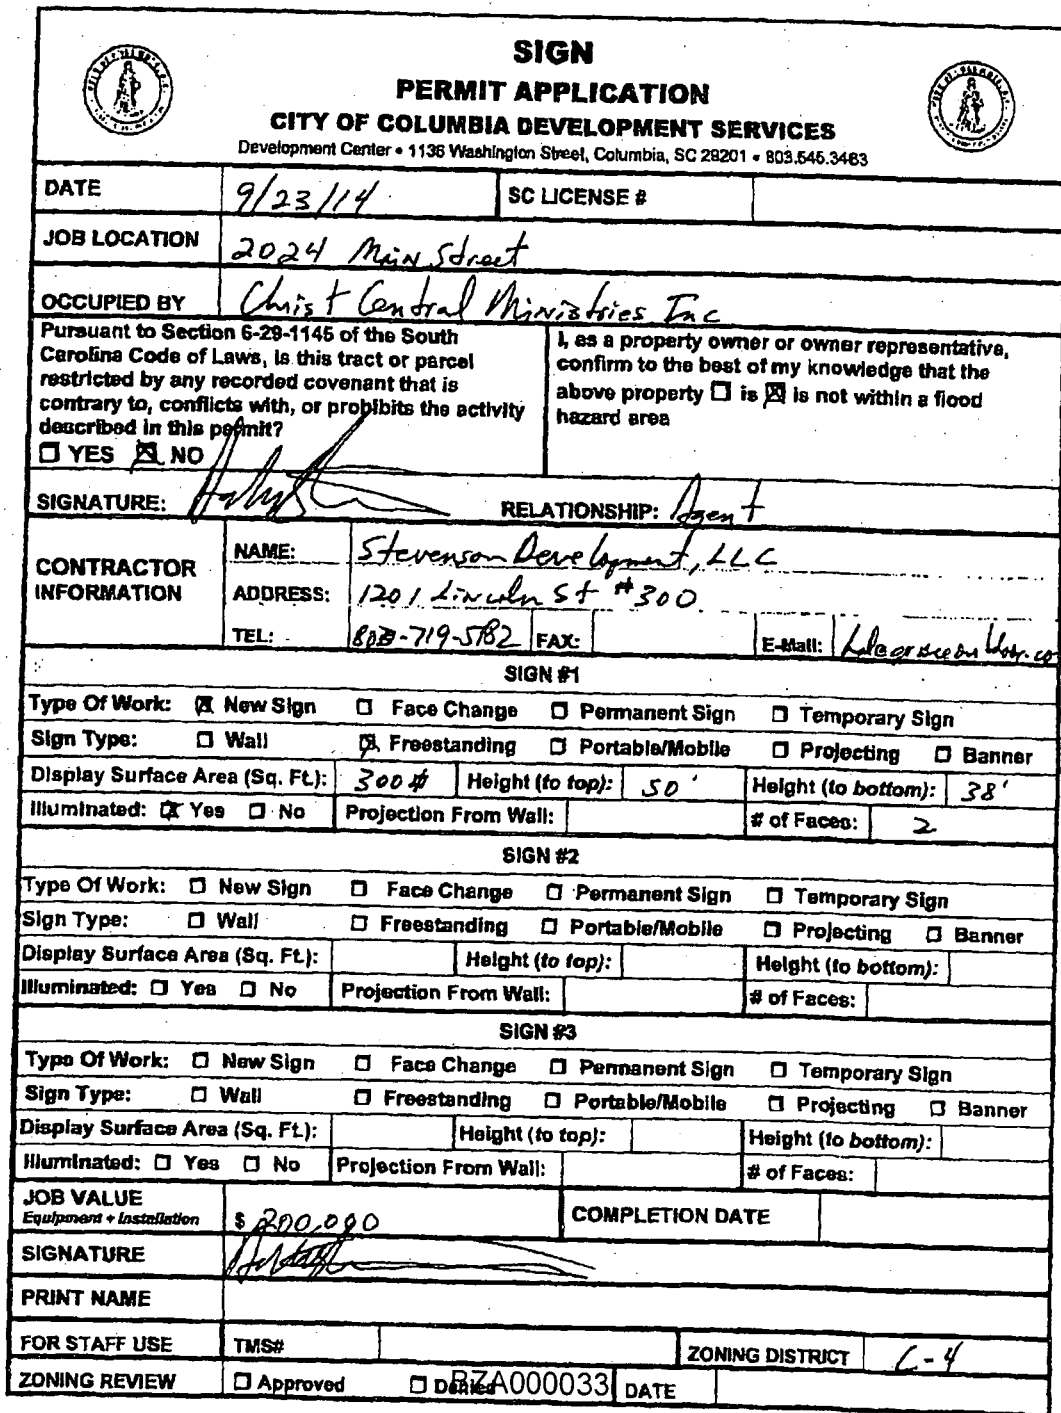 SIGN
PERMIT APPLICATION
CITY OF COLUMBIA DEVELOPMENT SERVICES
Development Center • 1136 Washington Street, Columbia, SC 29201 • 803.545.3483
DATE 9/23/14 SC LICENSE #
JOB LOCATION 2024 Main Street
OCCUPIED BY Christ Central Ministries Inc
Pursuant to Section 6-29-1145 of the South
Carolina Code of Laws, is this tract or parcel
restricted by any recorded covenant that is
contrary to, conflicts with, or prohibits the activity
described in this permit?
☐ YES ☒ NO
I, as a property owner or owner representative,
confirm to the best of my knowledge that the
above property ☐ is ☒ is not within a flood
hazard area
SIGNATURE: RELATIONSHIP: Agent
CONTRACTOR
INFORMATION
NAME: Stevenson Development, LLC
ADDRESS: 1201 Lincoln St #300
TEL: 803-719-5182 FAX: E-Mail:
SIGN #1
Type Of Work: ☒ New Sign ☐ Face Change ☐ Permanent Sign ☐ Temporary Sign
Sign Type: ☐ Wall ☒ Freestanding ☐ Portable/Mobile ☐ Projecting ☐ Banner
Display Surface Area (Sq. Ft.): 300 # Height (to top): 50' Height (to bottom): 38'
Illuminated: ☒ Yes ☐ No Projection From Wall: # of Faces: 2
SIGN #2
Type Of Work: ☐ New Sign ☐ Face Change ☐ Permanent Sign ☐ Temporary Sign
Sign Type: ☐ Wall ☐ Freestanding ☐ Portable/Mobile ☐ Projecting ☐ Banner
Display Surface Area (Sq. Ft.): Height (to top): Height (to bottom):
Illuminated: ☐ Yes ☐ No Projection From Wall: # of Faces:
SIGN #3
Type Of Work: ☐ New Sign ☐ Face Change ☐ Permanent Sign ☐ Temporary Sign
Sign Type: ☐ Wall ☐ Freestanding ☐ Portable/Mobile ☐ Projecting ☐ Banner
Display Surface Area (Sq. Ft.): Height (to top): Height (to bottom):
Illuminated: ☐ Yes ☐ No Projection From Wall: # of Faces:
JOB VALUE
Equipment + Installation $ 200,000 COMPLETION DATE
SIGNATURE
PRINT NAME
FOR STAFF USE TMS# ZONING DISTRICT C-4
ZONING REVIEW ☐ Approved ☐ Denied BZA000033 DATE